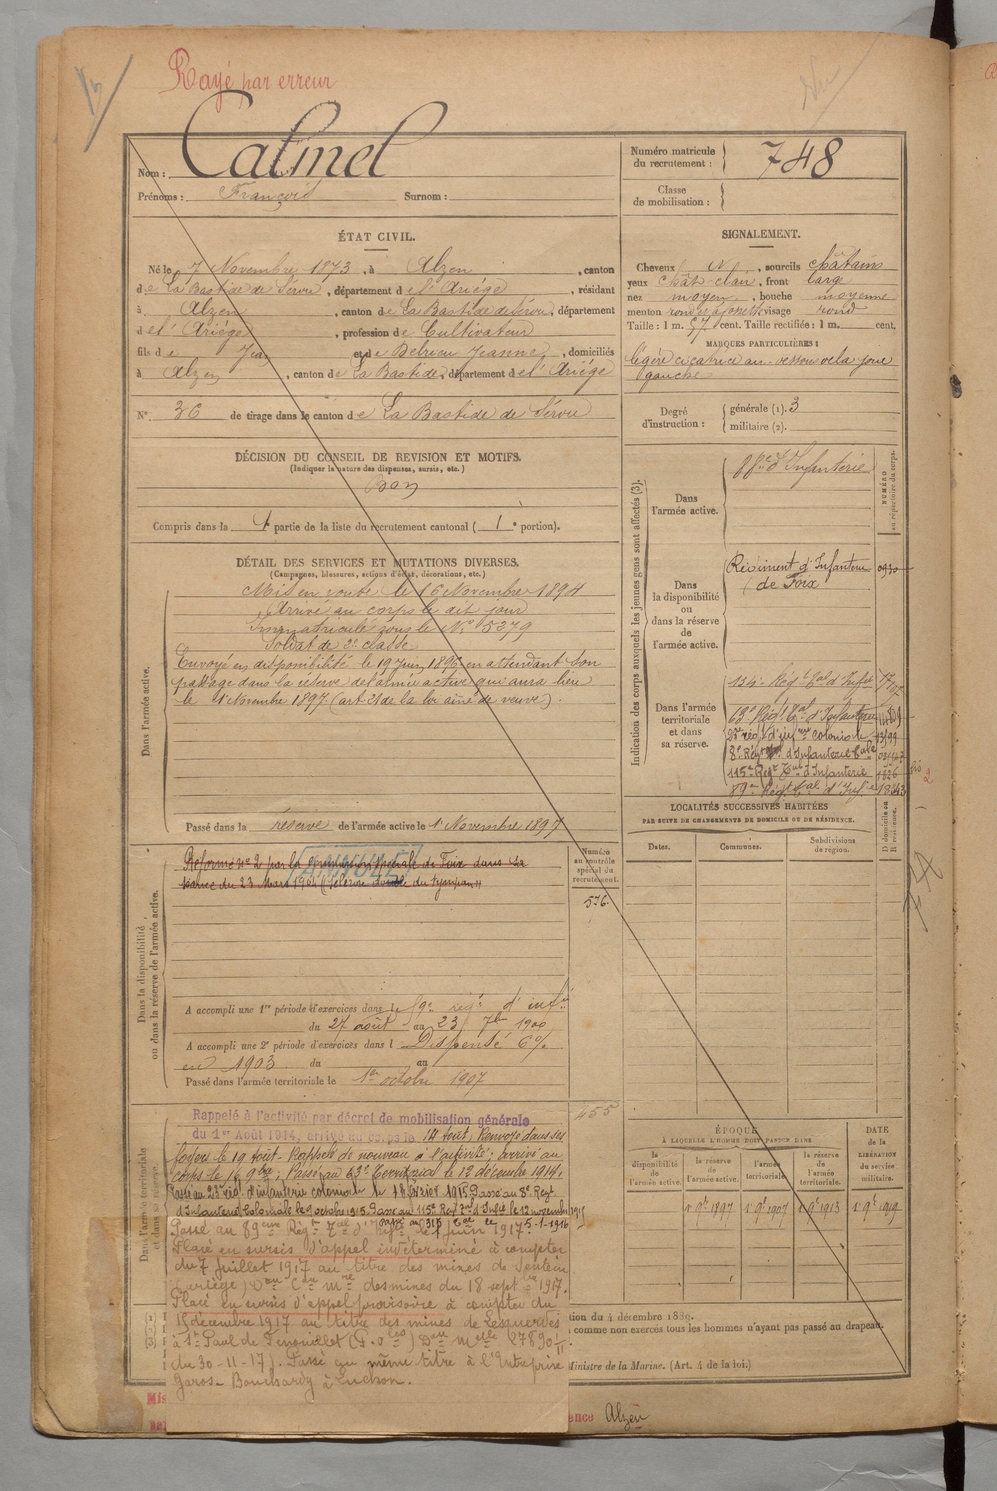 Rayé par erreur
Nom : Calmel
Prénoms : François Surnom :
Numéro matricule du recrutement : 748
Classe de mobilisation :
ÉTAT CIVIL.
Né le 7 Novembre 1873, à Alzen, canton
de La Bastide de Sérou, département de l'Ariège, résidant
à Alzen, canton de La Bastide de Sérou, département
de l'Ariège, profession de Cultivateur
fils de Jean et de Jeanne, domiciliés
à Alzen, canton de La Bastide, département de l'Ariège
N° 36 de tirage dans le canton de La Bastide de Sérou
DÉCISION DU CONSEIL DE REVISION ET MOTIFS.
(Indiquer la nature des dispenses, sursis, etc.)
Bon
Compris dans la 4 partie de la liste du recrutement cantonal ( 1e portion).
SIGNALEMENT.
Cheveux , sourcils châtains
yeux chât-clair, front large
nez moyen, bouche moyenne
menton rond visage rond
Taille : 1 m. 57 cent. Taille rectifiée : 1 m. cent.
MARQUES PARTICULIÈRES :
légère cicatrice au-dessous de la joue
gauche
Degré d'instruction : générale (1). 3
militaire (2).
Indication des corps auxquels les jeunes gens sont affectés (3).
NUMÉRO au répertoire du corps.
Dans l'armée active.
d'Infanterie
Dans la disponibilité ou dans la réserve de l'armée active.
Régiment d'Infanterie
de Foix
Dans l'armée territoriale et dans sa réserve.
134e Régt tal d'Infie
63e Régt tal d'Infanterie
23e régt d'infrie coloniale
8e Régt d'Infanterie Cale
115e Régt Tal d'Infanterie
89e Régt tal d'Infie
DÉTAIL DES SERVICES ET MUTATIONS DIVERSES.
(Campagnes, blessures, actions d'éclat, décorations, etc.)
Dans l'armée active.
Mis en route le 16 Novembre 1894
Arrivé au corps le dit jour
Immatriculé sous le No 5379
Soldat de 2e classe
Envoyé en disponibilité le 19 Juin 1896 en attendant son
passage dans la réserve de l'armée active qui aura lieu
le 1 Novembre 1897 (art 21 de la loi aîné de veuve).
Passé dans la réserve de l'armée active le 1 Novembre 1897
LOCALITÉS SUCCESSIVES HABITÉES
PAR SUITE DE CHANGEMENTS DE DOMICILE OU DE RÉSIDENCE.
Dates. Communes. Subdivisions de région. D. domicile ou R. résidence.
Dans la disponibilité ou dans la réserve de l'armée active.
Réformé no 2 par la commission spéciale de Foix dans sa
séance du 23 Mars 1904 (Sclérose double du tympan)
Numéro au contrôle spécial du recrutement.
576
A accompli une 1re période d'exercices dans le 59e régt d'infie
du 27 août au 23 7bre 1900
A accompli une 2e période d'exercices dans l Dispensé 6%
en 1903 du au
Passé dans l'armée territoriale le 1er octobre 1907
455
Dans l'armée territoriale et dans sa réserve.
Rappelé à l'activité par décret de mobilisation générale
du 1er Août 1914, arrivé au corps le 14 août, Renvoyé dans ses
foyers le 19 août. Rappelé de nouveau à l'activité; arrivé au
corps le 16 9bre, Passé au 63e Territorial le 12 décembre 1914.
Passé au 23e régt d'infanterie coloniale le 18 février 1915. Passé au 8e Régt
d'Infanterie Coloniale le 9 octobre 1915. Passé au 115e Régt Tal d'Infie le 12 novembre 1915
Passé au 313 Tal le 5-1-1916
Passé au 89eme Régt Tal d'Infie le 1 juin 1917.
Placé en sursis d'appel indéterminé à compter
du 7 juillet 1917 au titre des mines de Sentein
(Ariège) Don Con Mre des mines du 18 septbre 1917.
Placé en sursis d'appel provisoire à compter du
15 décembre 1917 au titre des mines de Lesquerdes
à St Paul de Fenouillet (P. Ore) Don Melle 27890 1/11
du 30-11-17). Passé au même titre à l'Entreprise
Garos-Bouchardy à Luchon.
ÉPOQUE
À LAQUELLE L'HOMME DOIT PASSER DANS
la disponibilité de l'armée active. la réserve de l'armée active. l'armée territoriale. la réserve de l'armée territoriale.
DATE de la LIBÉRATION du service militaire.
1er 9bre 1897 1er 9bre 1907 1er 9bre 1913 1er 9bre 1919
tion du 4 décembre 1889.
comme non exercés tous les hommes n'ayant pas passé au drapeau.
Ministre de la Marine. (Art. 4 de la loi.)
Mis
ence Alzen